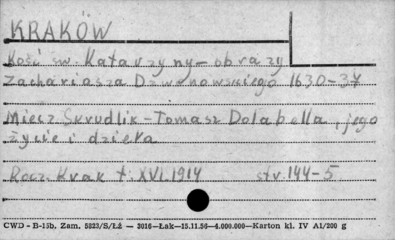 KRAKÓW
Kość św. Katarzyny – obrazy
Zachariasza Dzwonowskiego 1630-37
Miecz. Skrudlik – Tomasz Dolabella, jego
życie i dzieła
Rocz. Krak t. XVI. 1914 str. 144-5
CWD - B-15b. Zam. 5823/S/Łż — 3016—Łak—15.11.56—4.000.000—Karton kl. IV A1/200 g